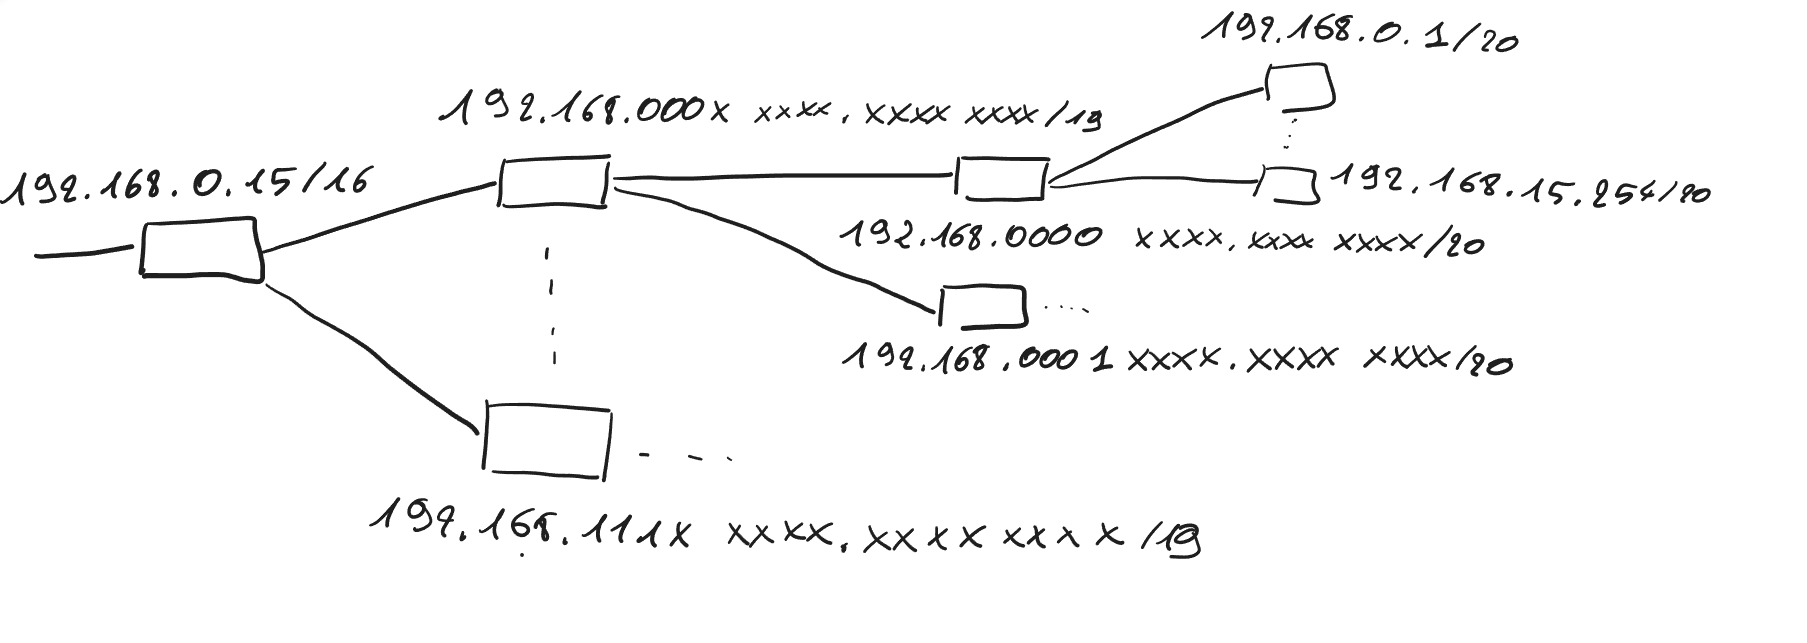 192.168.0.1/20
192.168.000x xxxx.xxxx xxxx/19
192.168.0.15/16
192.168.15.254/20
192.168.0000 xxxx.xxxx xxxx/20
192.168.0001 xxxx.xxxx xxxx/20
192.168.111x xxxx.xxxx xxxx/19